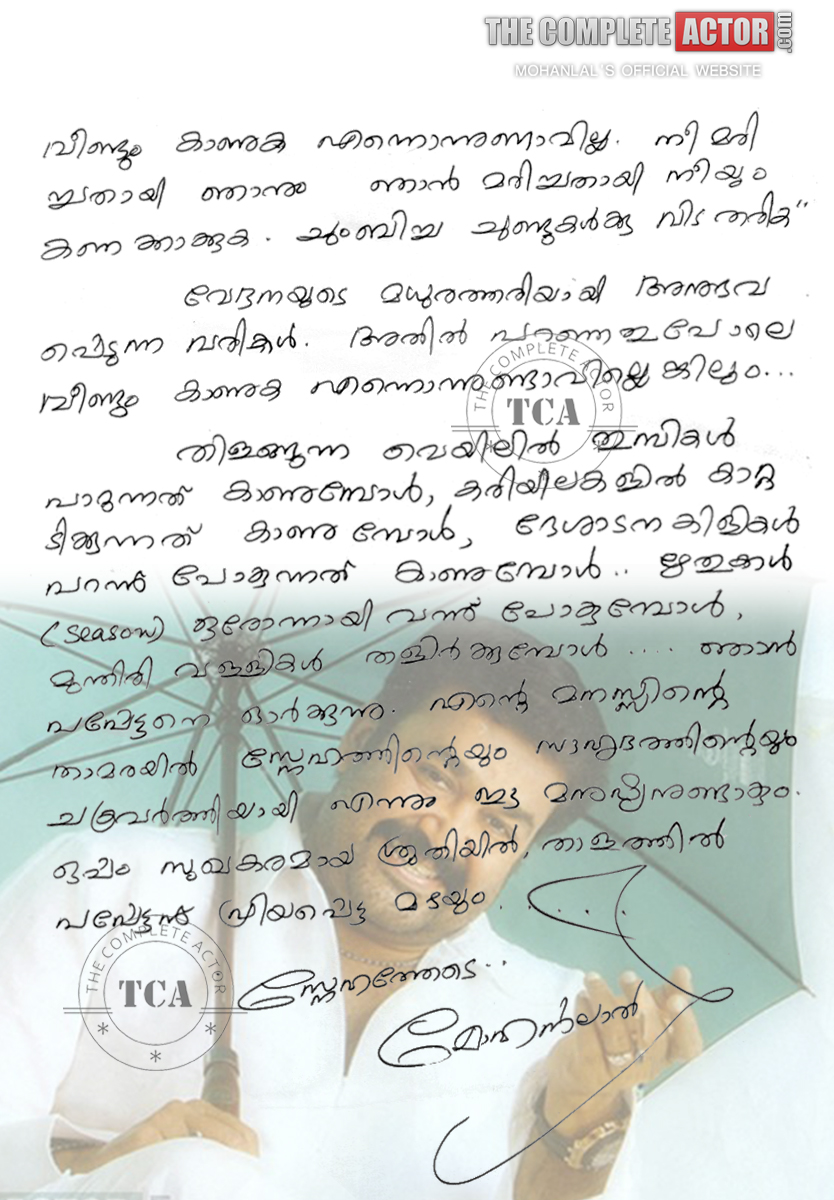 THE COMPLETE ACTOR.com
MOHANLAL'S OFFICIAL WEBSITE
വീണ്ടും കാണുക എന്നൊന്നുണ്ടാവില്ല. നീ മരി
ച്ചതായി ഞാനും ഞാൻ മരിച്ചതായി നീയും
കണക്കാക്കുക. ചുംബിച്ച ചുണ്ടുകൾക്കു വിട തരിക"
വേദനയുടെ മധുരത്തരിയായി അനുഭവ
പ്പെടുന്ന വരികൾ. അതിൽ പറഞ്ഞതുപോലെ
വീണ്ടും കാണുക എന്നൊന്നുണ്ടാവില്ലെങ്കിലും...
തിളങ്ങുന്ന വെയിലിൽ തുമ്പികൾ
പാറുന്നത് കാണുമ്പോൾ, കരിയിലകളിൽ കാറ്റ
ടിക്കുന്നത് കാണുമ്പോൾ, ദേശാടനകിളികൾ
പറന്നു പോകുന്നത് കാണുമ്പോൾ.. ഋതുക്കൾ
(season) ഒരോന്നായി വന്ന് പോകുമ്പോൾ,
മുന്തിരി വള്ളികൾ തളിർക്കുമ്പോൾ .... ഞാൻ
പപ്പേട്ടനെ ഓർക്കുന്നു. എന്റെ മനസ്സിന്റെ
താമരയിൽ സ്നേഹത്തിന്റെയും സൗഹൃദത്തിന്റെയും
ചക്രവർത്തിയായി എന്നും ഈ മനുഷ്യനുണ്ടാകും.
ഒപ്പം സുഖകരമായ ശ്രുതിയിൽ, താളത്തിൽ
പപ്പേട്ടന് പ്രിയപ്പെട്ട മഴയും.....
സ്നേഹത്തോടെ..
മോഹൻലാൽ
THE COMPLETE ACTOR
TCA
THE COMPLETE ACTOR
TCA